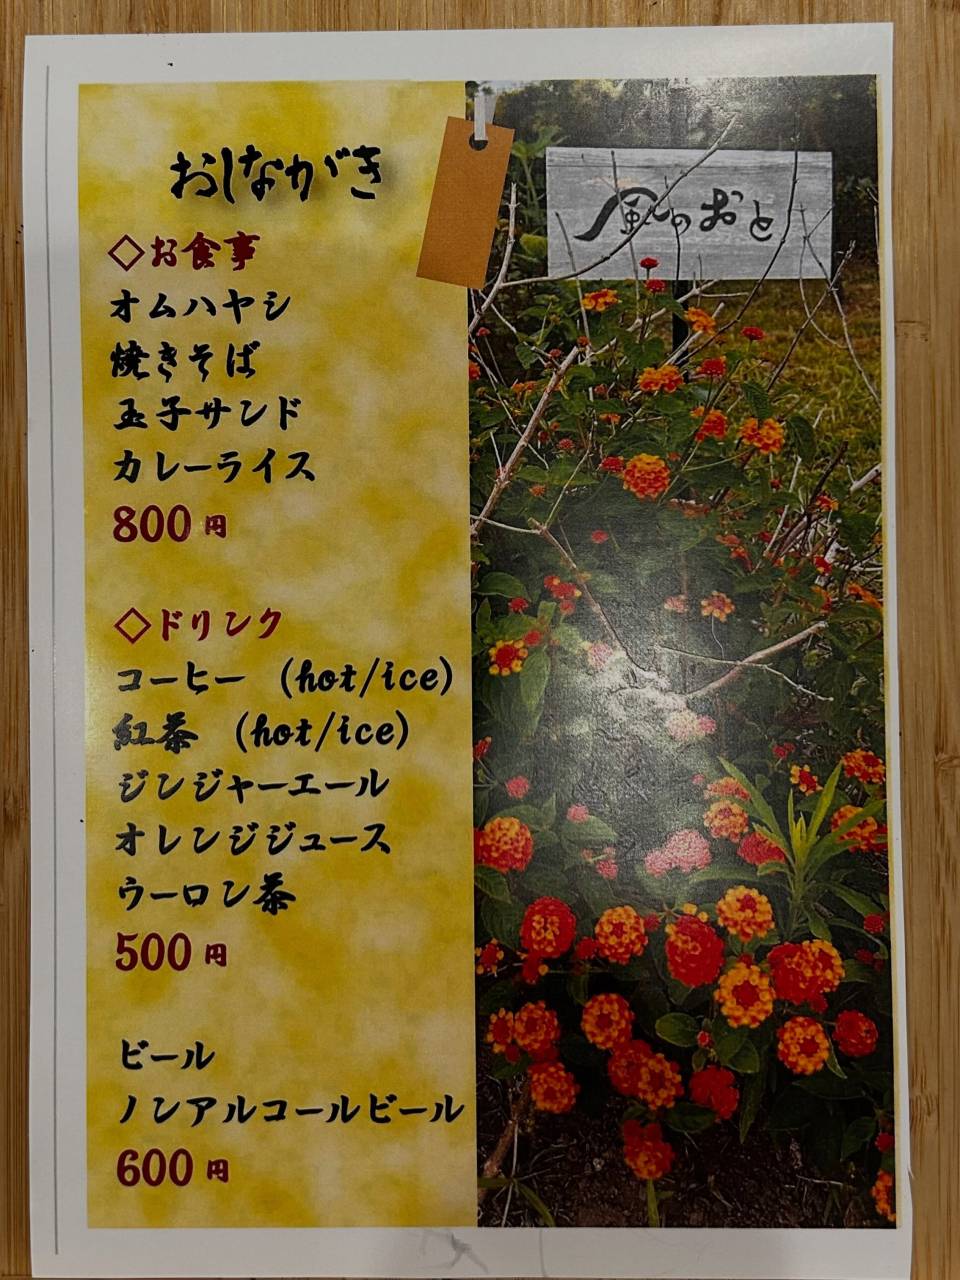 おしながき
◇お食事
オムハヤシ
焼きそば
玉子サンド
カレーライス
800円
◇ドリンク
コーヒー (hot/ice)
紅茶 (hot/ice)
ジンジャーエール
オレンジジュース
ウーロン茶
500円
ビール
ノンアルコールビール
600円
風のおと